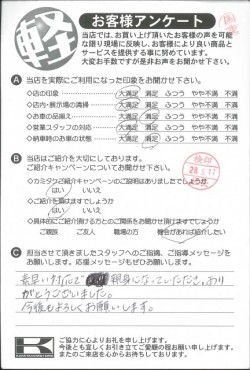 軽
お客様アンケート
当店では、お買い上げ頂いたお客様の声を可能
な限り現場に反映し、お客様により良い商品と
サービスを提供する事に努めています。
大変お手数ですが是非お声をお聞かせ下さい。
A 当店を実際にご利用になった印象をお聞かせ下さい。
◇店の印象 大満足 満足 ふつう やや不満 不満
◇店内・展示場の清掃 大満足 満足 ふつう やや不満 不満
◇お車の品揃え 大満足 満足 ふつう やや不満 不満
◇営業スタッフの対応 大満足 満足 ふつう やや不満 不満
◇納車時のお車の状態 大満足 満足 ふつう やや不満 不満
B 当店はご紹介を大切にしております。
ご紹介についてお聞かせ下さい。
◇カミタケご紹介キャンペーンのご説明はありましたでしょうか
はい いいえ
◇ご紹介を頂けますでしょうか
はい いいえ
◇具体的にご紹介頂ける方とのご関係をお聞かせ頂けますでしょうか
ご親類 ご友人 職場の方 機会があれば紹介したい
C 担当させて頂きましたスタッフへのご指摘、ご指導メッセージを
お願いします。応援メッセージもぜひお願いします。
素早い対応で 親身になっていただき、あり
がとうございました。
今後もよろしくお願いします。
K
ご協力に心よりお礼を申し上げます。
今後とも宜しくお引き立てご愛顧の程お願い申し上げます。
またのご来店を心からお待ちしております。